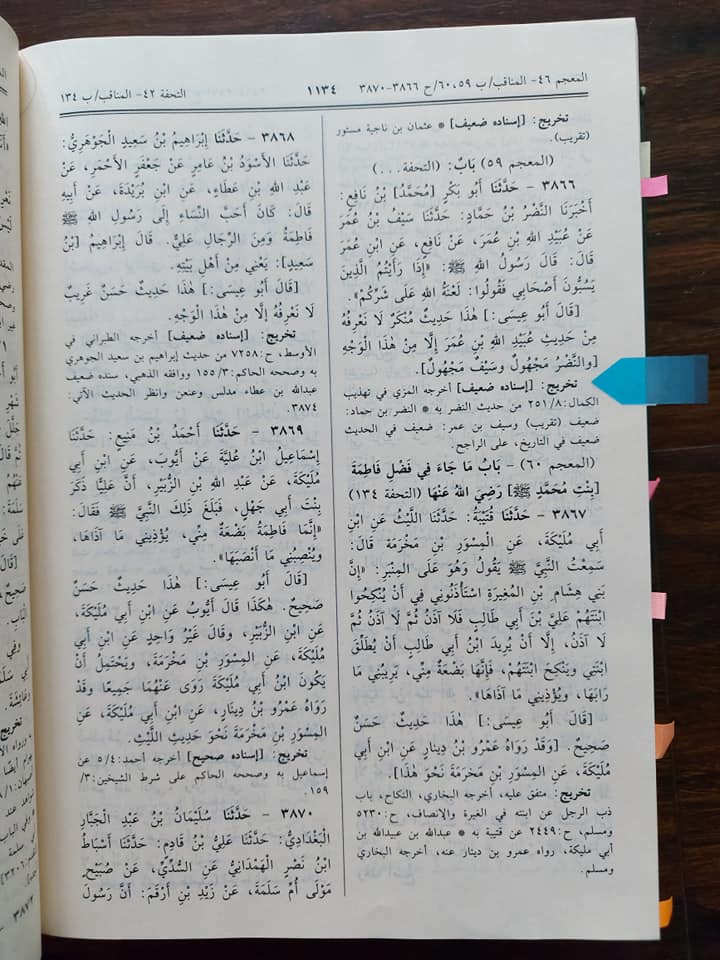 المعجم ٤٦- المناقب/ ب ٥٩، ٦٠/ح ٣٨٦٦-٣٨٧٠
١١٣٤
التحفة ٤٢- المناقب/ ب ١٣٤
تخريج: [إسناده ضعيف] * عثمان بن ناجية مستور
(تقريب).
(المعجم ٥٩) بَابٌ: (التحفة...)
٣٨٦٦ - حَدَّثَنَا أَبُو بَكْرٍ [مُحَمَّدُ] بْنُ نَافِعٍ:
أَخْبَرَنَا النَّضْرُ بْنُ حَمَّادٍ: حَدَّثَنَا سَيْفُ بْنُ عُمَرَ
عَنْ عُبَيْدِ اللهِ بْنِ عُمَرَ، عَنْ نَافِعٍ، عَنِ ابْنِ عُمَرَ
قَالَ: قَالَ رَسُولُ اللهِ ﷺ: «إِذَا رَأَيْتُمُ الَّذِينَ
يَسُبُّونَ أَصْحَابِي فَقُولُوا: لَعْنَةُ اللهِ عَلَى شَرِّكُمْ».
[قَالَ أَبُو عِيسَى:] هٰذَا حَدِيثٌ مُنْكَرٌ لَا نَعْرِفُهُ
مِنْ حَدِيثِ عُبَيْدِ اللهِ بْنِ عُمَرَ إِلَّا مِنْ هٰذَا الْوَجْهِ
[والنَّضْرُ مَجْهُولٌ وسَيْفٌ مَجْهُولٌ].
تخريج: [إسناده ضعيف] أخرجه المزي في تهذيب
الكمال: ٢٥١/٨ من حديث النضر به * النضر بن حماد:
ضعيف (تقريب) وسيف بن عمر: ضعيف في الحديث
ضعيف في التاريخ، على الراجح.
(المعجم ٦٠) - بَابُ مَا جَاءَ فِي فَضْلِ فَاطِمَةَ
[بِنْتِ مُحَمَّدٍ ﷺ] رَضِيَ اللهُ عَنْهَا (التحفة ١٣٤)
٣٨٦٧ - حَدَّثَنَا قُتَيْبَةُ: حَدَّثَنَا اللَّيْثُ عَنِ ابْنِ
أَبِي مُلَيْكَةَ، عَنِ الْمِسْوَرِ بْنِ مَخْرَمَةَ قَالَ:
سَمِعْتُ النَّبِيَّ ﷺ يَقُولُ وَهُوَ عَلَى الْمِنْبَرِ: «إِنَّ
بَنِي هِشَامِ بْنِ الْمُغِيرَةِ اسْتَأْذَنُونِي فِي أَنْ يُنْكِحُوا
ابْنَتَهُمْ عَلِيَّ بْنَ أَبِي طَالِبٍ فَلَا آذَنُ ثُمَّ لَا آذَنُ ثُمَّ
لَا آذَنُ، إِلَّا أَنْ يُرِيدَ ابْنُ أَبِي طَالِبٍ أَنْ يُطَلِّقَ
ابْنَتِي وَيَنْكِحَ ابْنَتَهُمْ، فَإِنَّهَا بَضْعَةٌ مِنِّي، يَرِيبُنِي مَا
رَابَهَا، ويُؤْذِينِي مَا آذَاهَا».
[قَالَ أَبُو عِيسَى:] هٰذَا حَدِيثٌ حَسَنٌ
صَحِيحٌ. [وَقَدْ رَوَاهُ عَمْرُو بْنُ دِينَارٍ عَنِ ابْنِ أَبِي
مُلَيْكَةَ، عَنِ الْمِسْوَرِ بْنِ مَخْرَمَةَ نَحْوَ هٰذَا].
تخريج: متفق عليه، أخرجه البخاري، النكاح، باب
ذب الرجل عن ابنته في الغيرة والإنصاف، ح: ٥٢٣٠
ومسلم، ح: ٢٤٤٩ عن قتيبة به * عبدالله بن عبيدالله بن
أبي مليكة، رواه عمرو بن دينار عنه، أخرجه البخاري
ومسلم.
٣٨٦٨ - حَدَّثَنَا إِبْرَاهِيمُ بْنُ سَعِيدٍ الْجَوْهَرِيُّ:
حَدَّثَنَا الأَسْوَدُ بْنُ عَامِرٍ عَنْ جَعْفَرٍ الأَحْمَرِ، عَنْ
عَبْدِ اللهِ بْنِ عَطَاءٍ، عَنِ ابْنِ بُرَيْدَةَ، عَنْ أَبِيهِ
قَالَ: كَانَ أَحَبَّ النِّسَاءِ إِلَى رَسُولِ اللهِ ﷺ
فَاطِمَةُ وَمِنَ الرِّجَالِ عَلِيٌّ. قَالَ إِبْرَاهِيمُ [بْنُ
سَعِيدٍ]: يَعْنِي مِنْ أَهْلِ بَيْتِهِ.
[قَالَ أَبُو عِيسَى:] هٰذَا حَدِيثٌ حَسَنٌ غَرِيبٌ
لَا نَعْرِفُهُ إِلَّا مِنْ هٰذَا الْوَجْهِ.
تخريج: [إسناده ضعيف] أخرجه الطبراني في
الأوسط، ح: ٧٢٥٨ من حديث إبراهيم بن سعيد الجوهري
به وصححه الحاكم: ١٥٥/٣ ووافقه الذهبي، سنده ضعيف
عبدالله بن عطاء مدلس وعنعن وانظر الحديث الآتي:
٣٨٧٤.
٣٨٦٩ - حَدَّثَنَا أَحْمَدُ بْنُ مَنِيعٍ: حَدَّثَنَا
إِسْمَاعِيلُ ابْنُ عُلَيَّةَ عَنْ أَيُّوبَ، عَنِ ابْنِ أَبِي
مُلَيْكَةَ، عَنْ عَبْدِ اللهِ بْنِ الزُّبَيْرِ، أَنَّ عَلِيًّا ذَكَرَ
بِنْتَ أَبِي جَهْلٍ، فَبَلَغَ ذٰلِكَ النَّبِيَّ ﷺ فَقَالَ:
«إِنَّمَا فَاطِمَةُ بَضْعَةٌ مِنِّي، يُؤْذِينِي مَا آذَاهَا،
ويُنْصِبُنِي مَا أَنْصَبَهَا».
[قَالَ أَبُو عِيسَى:] هٰذَا حَدِيثٌ حَسَنٌ
صَحِيحٌ. هٰكَذَا قَالَ أَيُّوبُ عَنِ ابْنِ أَبِي مُلَيْكَةَ،
عَنِ ابْنِ الزُّبَيْرِ، وقالَ غَيْرُ وَاحِدٍ عَنِ ابْنِ أَبِي
مُلَيْكَةَ، عَنِ الْمِسْوَرِ بْنِ مَخْرَمَةَ، ويَحْتَمِلُ أَنْ
يَكُونَ ابْنُ أَبِي مُلَيْكَةَ رَوَى عَنْهُمَا جَمِيعًا وقَدْ
رَوَاهُ عَمْرُو بْنُ دِينَارٍ، عَنِ ابْنِ أَبِي مُلَيْكَةَ، عَنِ
الْمِسْوَرِ بْنِ مَخْرَمَةَ نَحْوَ حَدِيثِ اللَّيْثِ.
تخريج: [إسناده صحيح] أخرجه أحمد: ٥/٤ عن
إسماعيل به وصححه الحاكم على شرط الشيخين: ٣/
١٥٩.
٣٨٧٠ - حَدَّثَنَا سُلَيْمَانُ بْنُ عَبْدِ الْجَبَّارِ
الْبَغْدَادِيُّ: حَدَّثَنَا عَلِيُّ بْنُ قَادِمٍ: حَدَّثَنَا أَسْبَاطُ
ابْنُ نَصْرٍ الْهَمْدَانِيُّ عَنِ السُّدِّيِّ، عَنْ صُبَيْحٍ
مَوْلَى أُمِّ سَلَمَةَ، عَنْ زَيْدِ بْنِ أَرْقَمَ: أَنَّ رَسُولَ